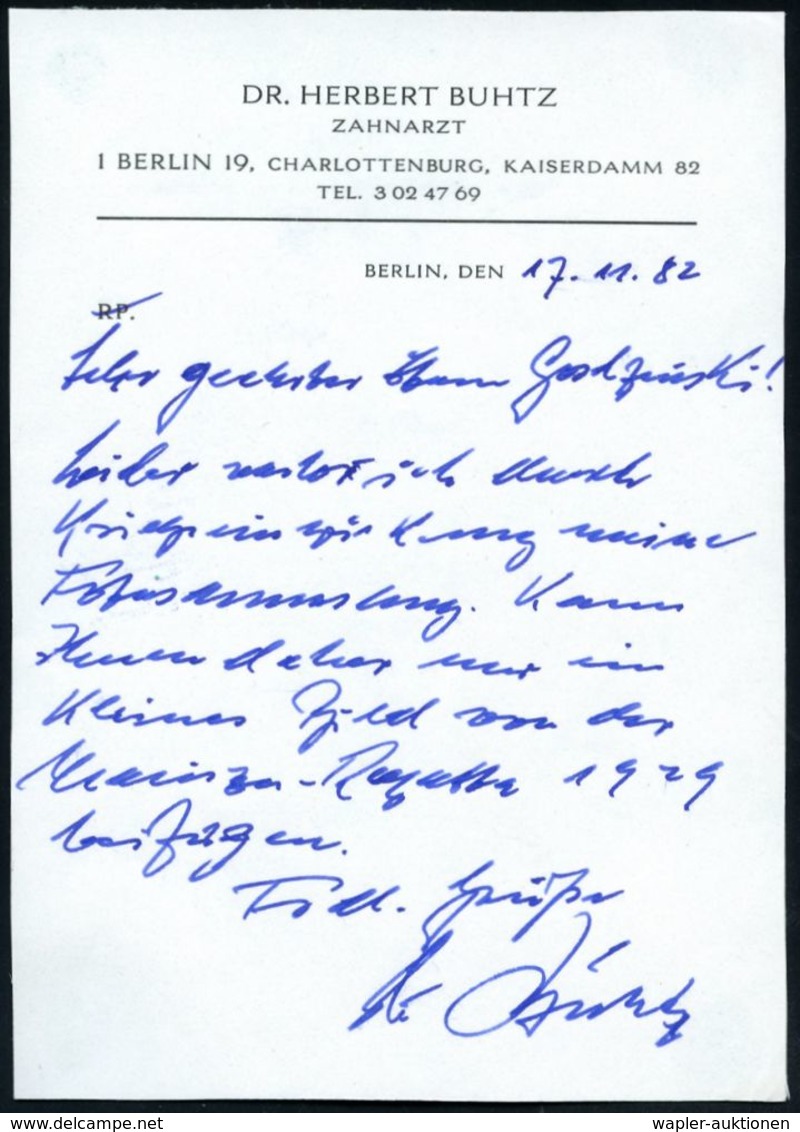 DR. HERBERT BUHTZ
ZAHNARZT
1 BERLIN 19, CHARLOTTENBURG, KAISERDAMM 82
TEL. 3 02 47 69
BERLIN, DEN 17. 11. 82
RP.
Sehr geehrter Herr
Leider verlor ich durch
Kriegseinwirkung meine
Fotosammlung. Kann
Ihnen daher nur ein
kleines Bild von der
-Regatta 1929
beifügen.
Frdl. Grüße
Buhtz
www.delcampe.net
wapler-auktionen